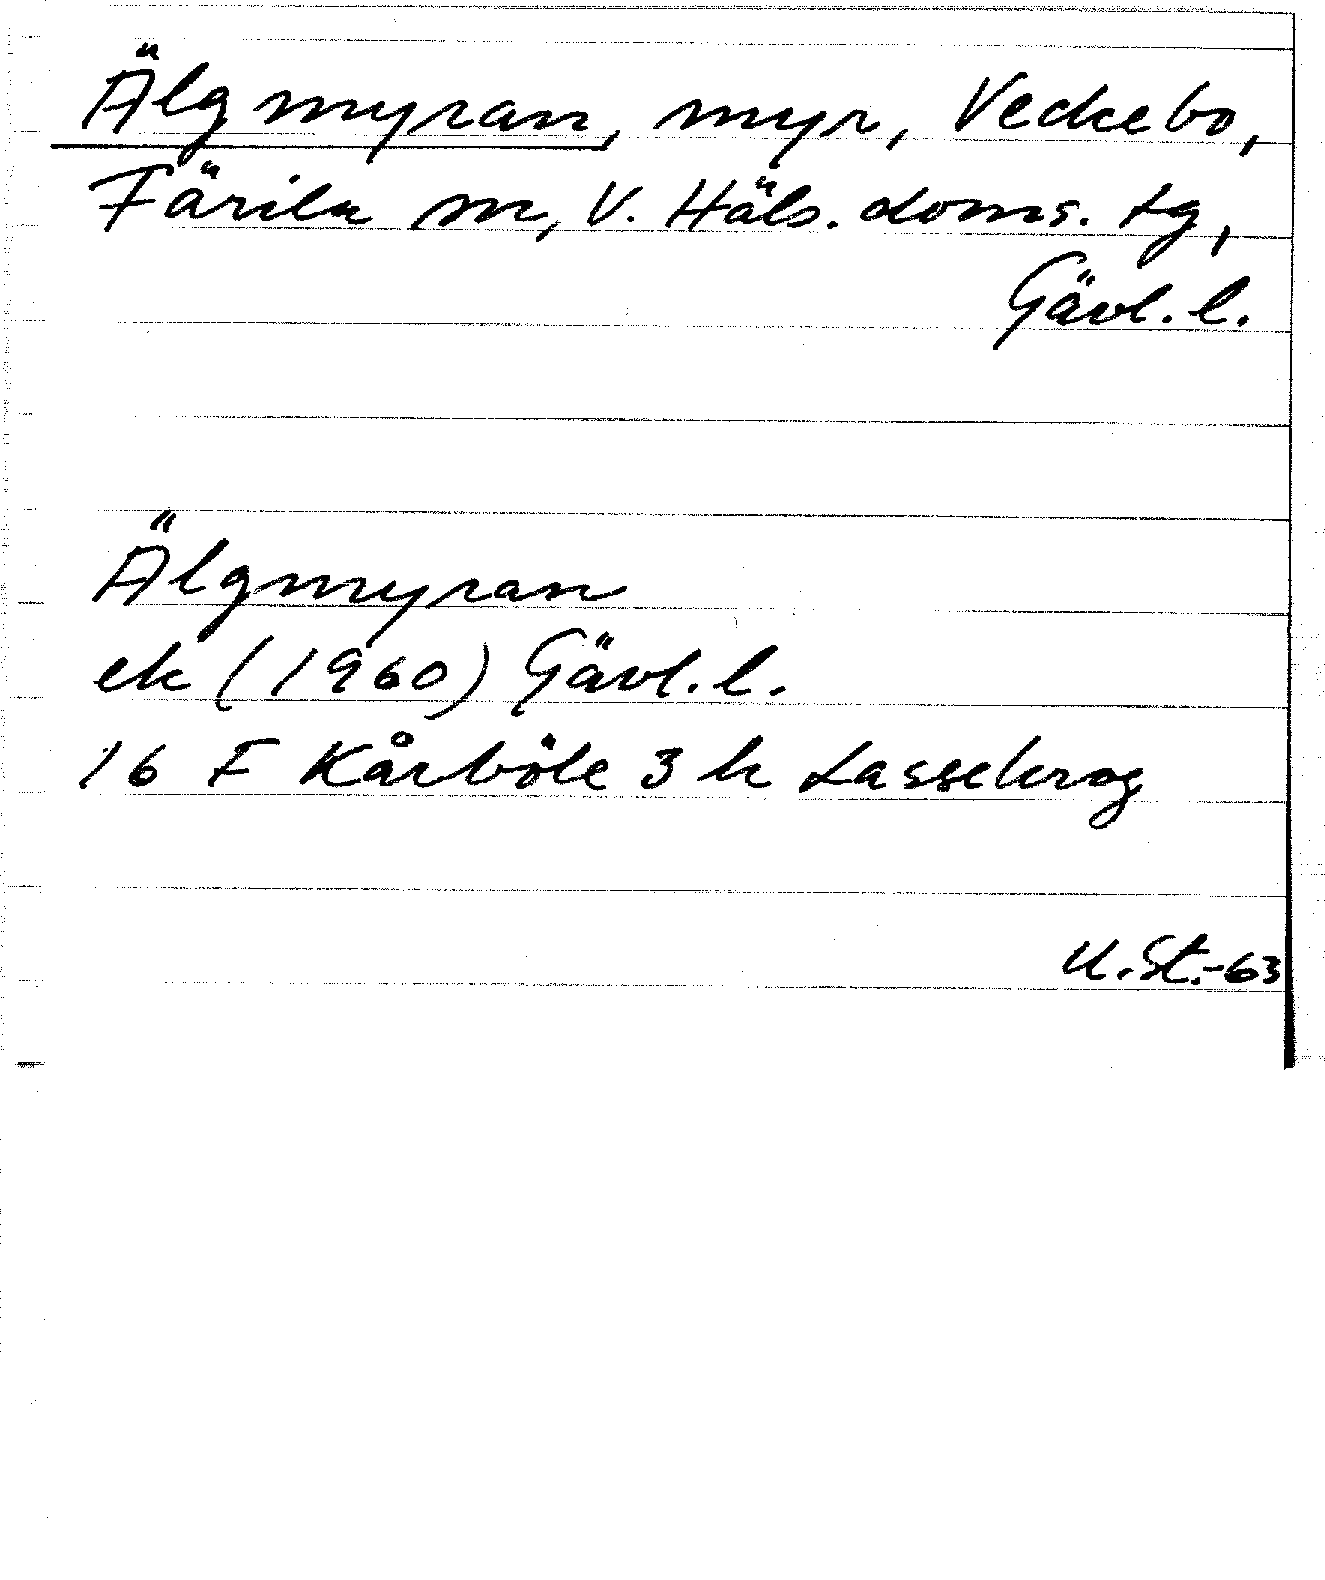 Älgmyran, myr, Veckebo,
Färila sn, V. Häls. doms. tg,
Gävl. l.
Älgmyran
ek (1960) Gävl. l.
16 F Kårböle 3 h Lassekrog
U.St.-63